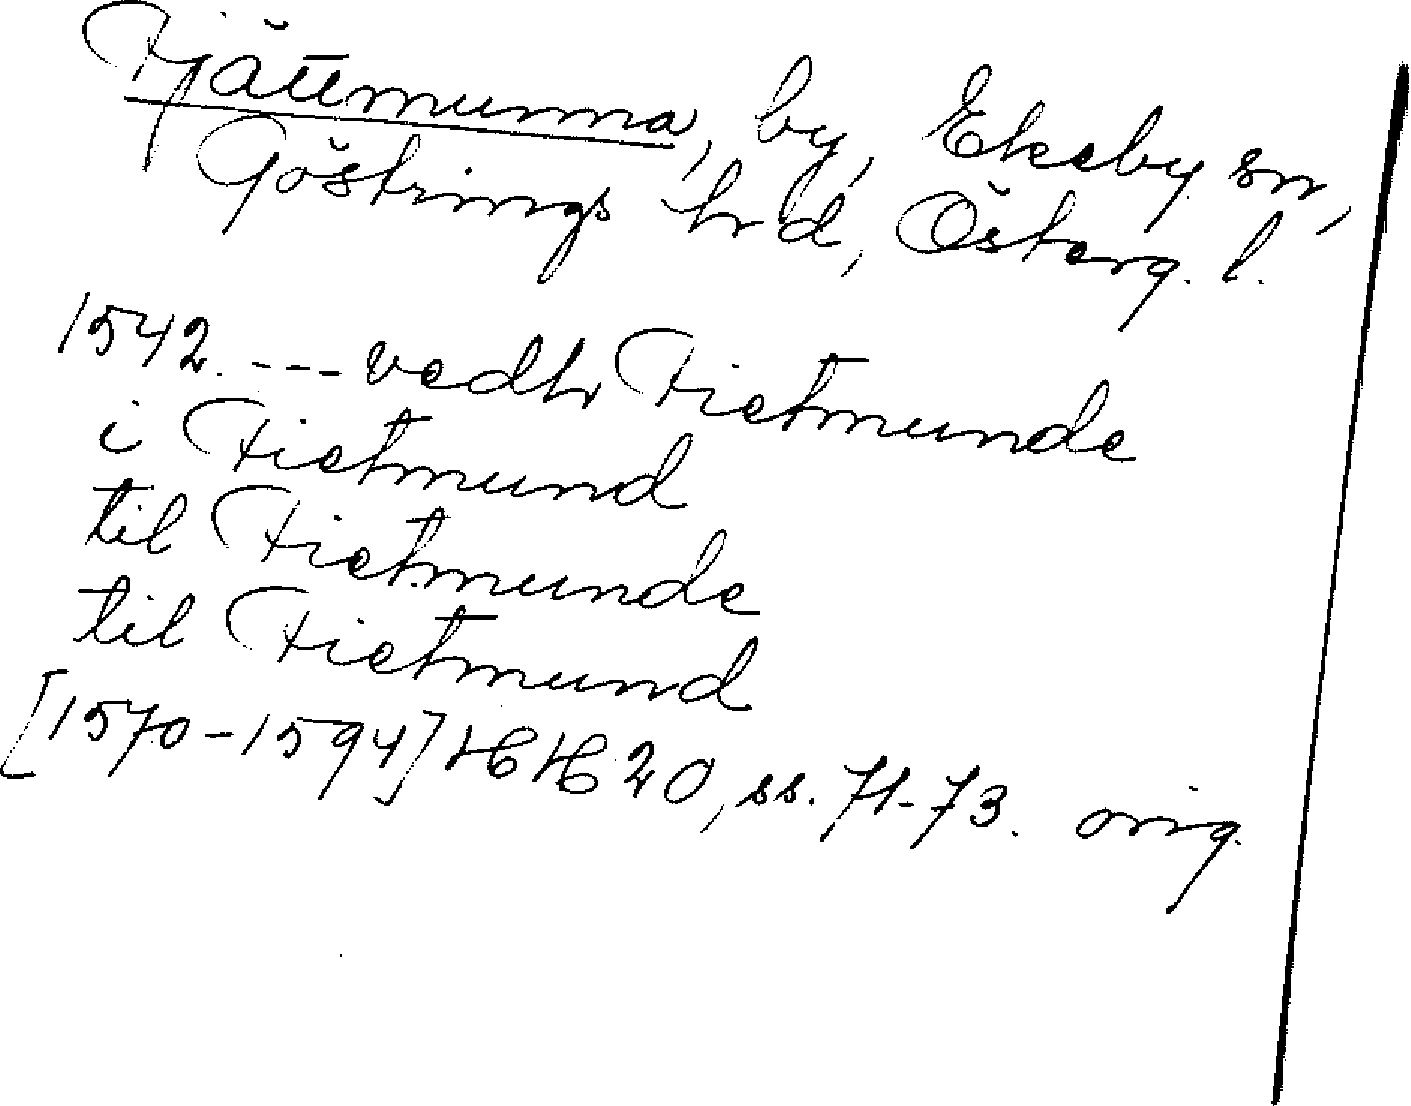 Fjättmunna, by, Ekeby sn,
Göstrings hrd, Österg. l.
1542. --- vedh Fietmunde
i Fietmund
til Fietmunde
til Fietmund
[1570-1594] HH 20, ss. 71-73. orig.